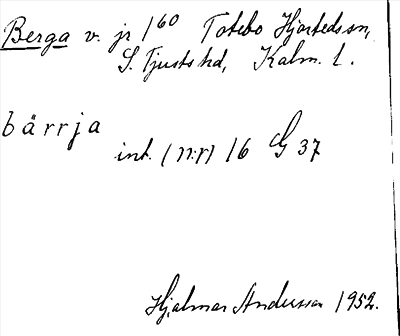 Berga v. jr 1⁶⁰ Totebo Hjorteds sn,
S. Tjusts hd, Kalm. l.
bärrja
int. (n:r) 16 G 37
Hjalmar Andersson 1952.